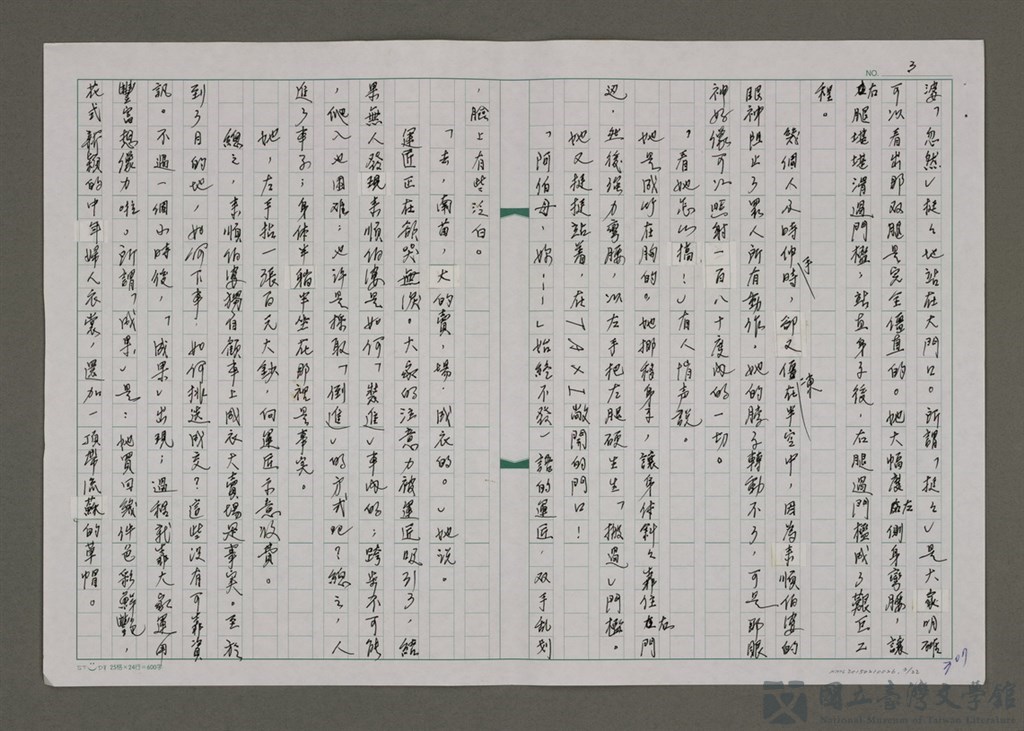 NO. 3
婆「忽然」挺々地站在大門口。所謂「挺々」是大家明確
可以看出那双腿是完全僵直的。她大幅度左側身彎腰,讓
右腿堪堪滑過門檻,站直身子後,右腿過門檻成了艱巨工
程。
幾個人及時伸手時,卻又僵凍在半空中,因為素順伯婆的
眼神阻止了眾人所有動作。她的脖子轉動不了,可是那眼
神好像可以照射一百八十度內的一切。
「看她怎么搞!」有人悄声說。
她是成竹在胸的。她挪移身手,讓身体斜々靠住右門
边,然後強力彎腰,以左手把左腿硬生生「搬過」門檻。
她又挺挺站着,在TAXI敞開的門口!
「阿伯母,妳……」始終不發一語的運匠,双手乱划
,臉上有些泛白。
「去,南苗,大的賣,場,成衣的。」她說。
運匠正在欲哭無淚。大家的注意力被運匠吸引了,結
果無人發現素順伯婆是如何「裝進」車內的;跨步不可能
,爬入也困难;也许是採取「倒進」的方式吧?總之,人
進了車子;身体半躺半坐在那裡是事实。
她,左手拈一張百元大鈔,向運匠示意收費。
總之,素順伯婆獨自顧車上成衣大賣場是事实。至於
到了目的地,如何下車,如何挑选成交?這些沒有可靠資
訊。不過一個小時後,「成果」出現;過程就靠大家運用
豐富想像力啦。所謂「成果」是:她買回幾件色彩鮮艷,
花式新穎的中年婦人衣裳,還加一頂帶流蘇的草帽。
25格×24行=600字
國立臺灣文學館
National Museum of Taiwan Literature